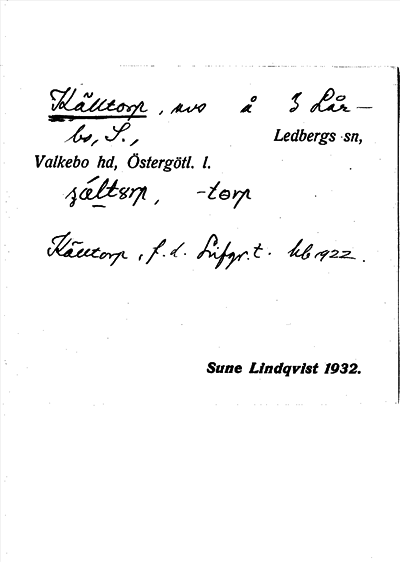 Källtorp, avs å 3 Lår-
bo, S.,
Ledbergs sn,
Valkebo hd, Östergötl. l.
-torp
Källtorp, f.d. Livgr.t. kb 1922.
Sune Lindqvist 1932.